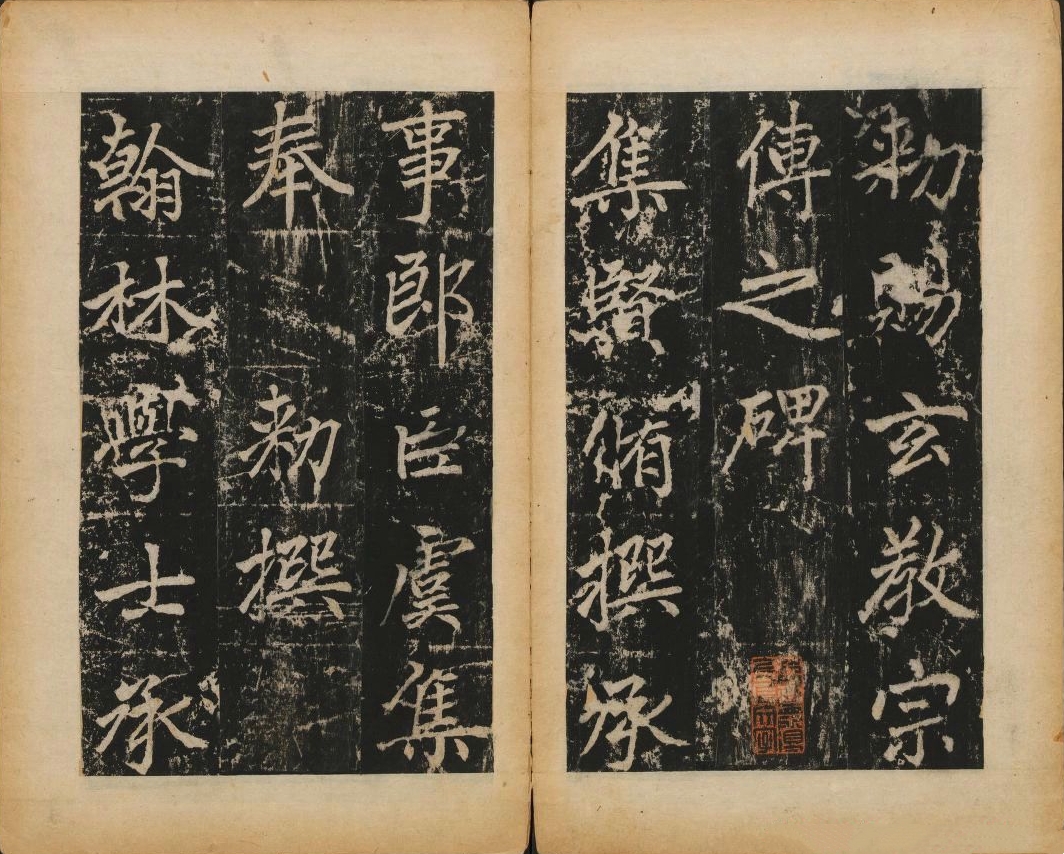 勑賜玄教宗
傳之碑
集賢脩撰承
事郎臣虞集
奉
勑撰
翰林學士承